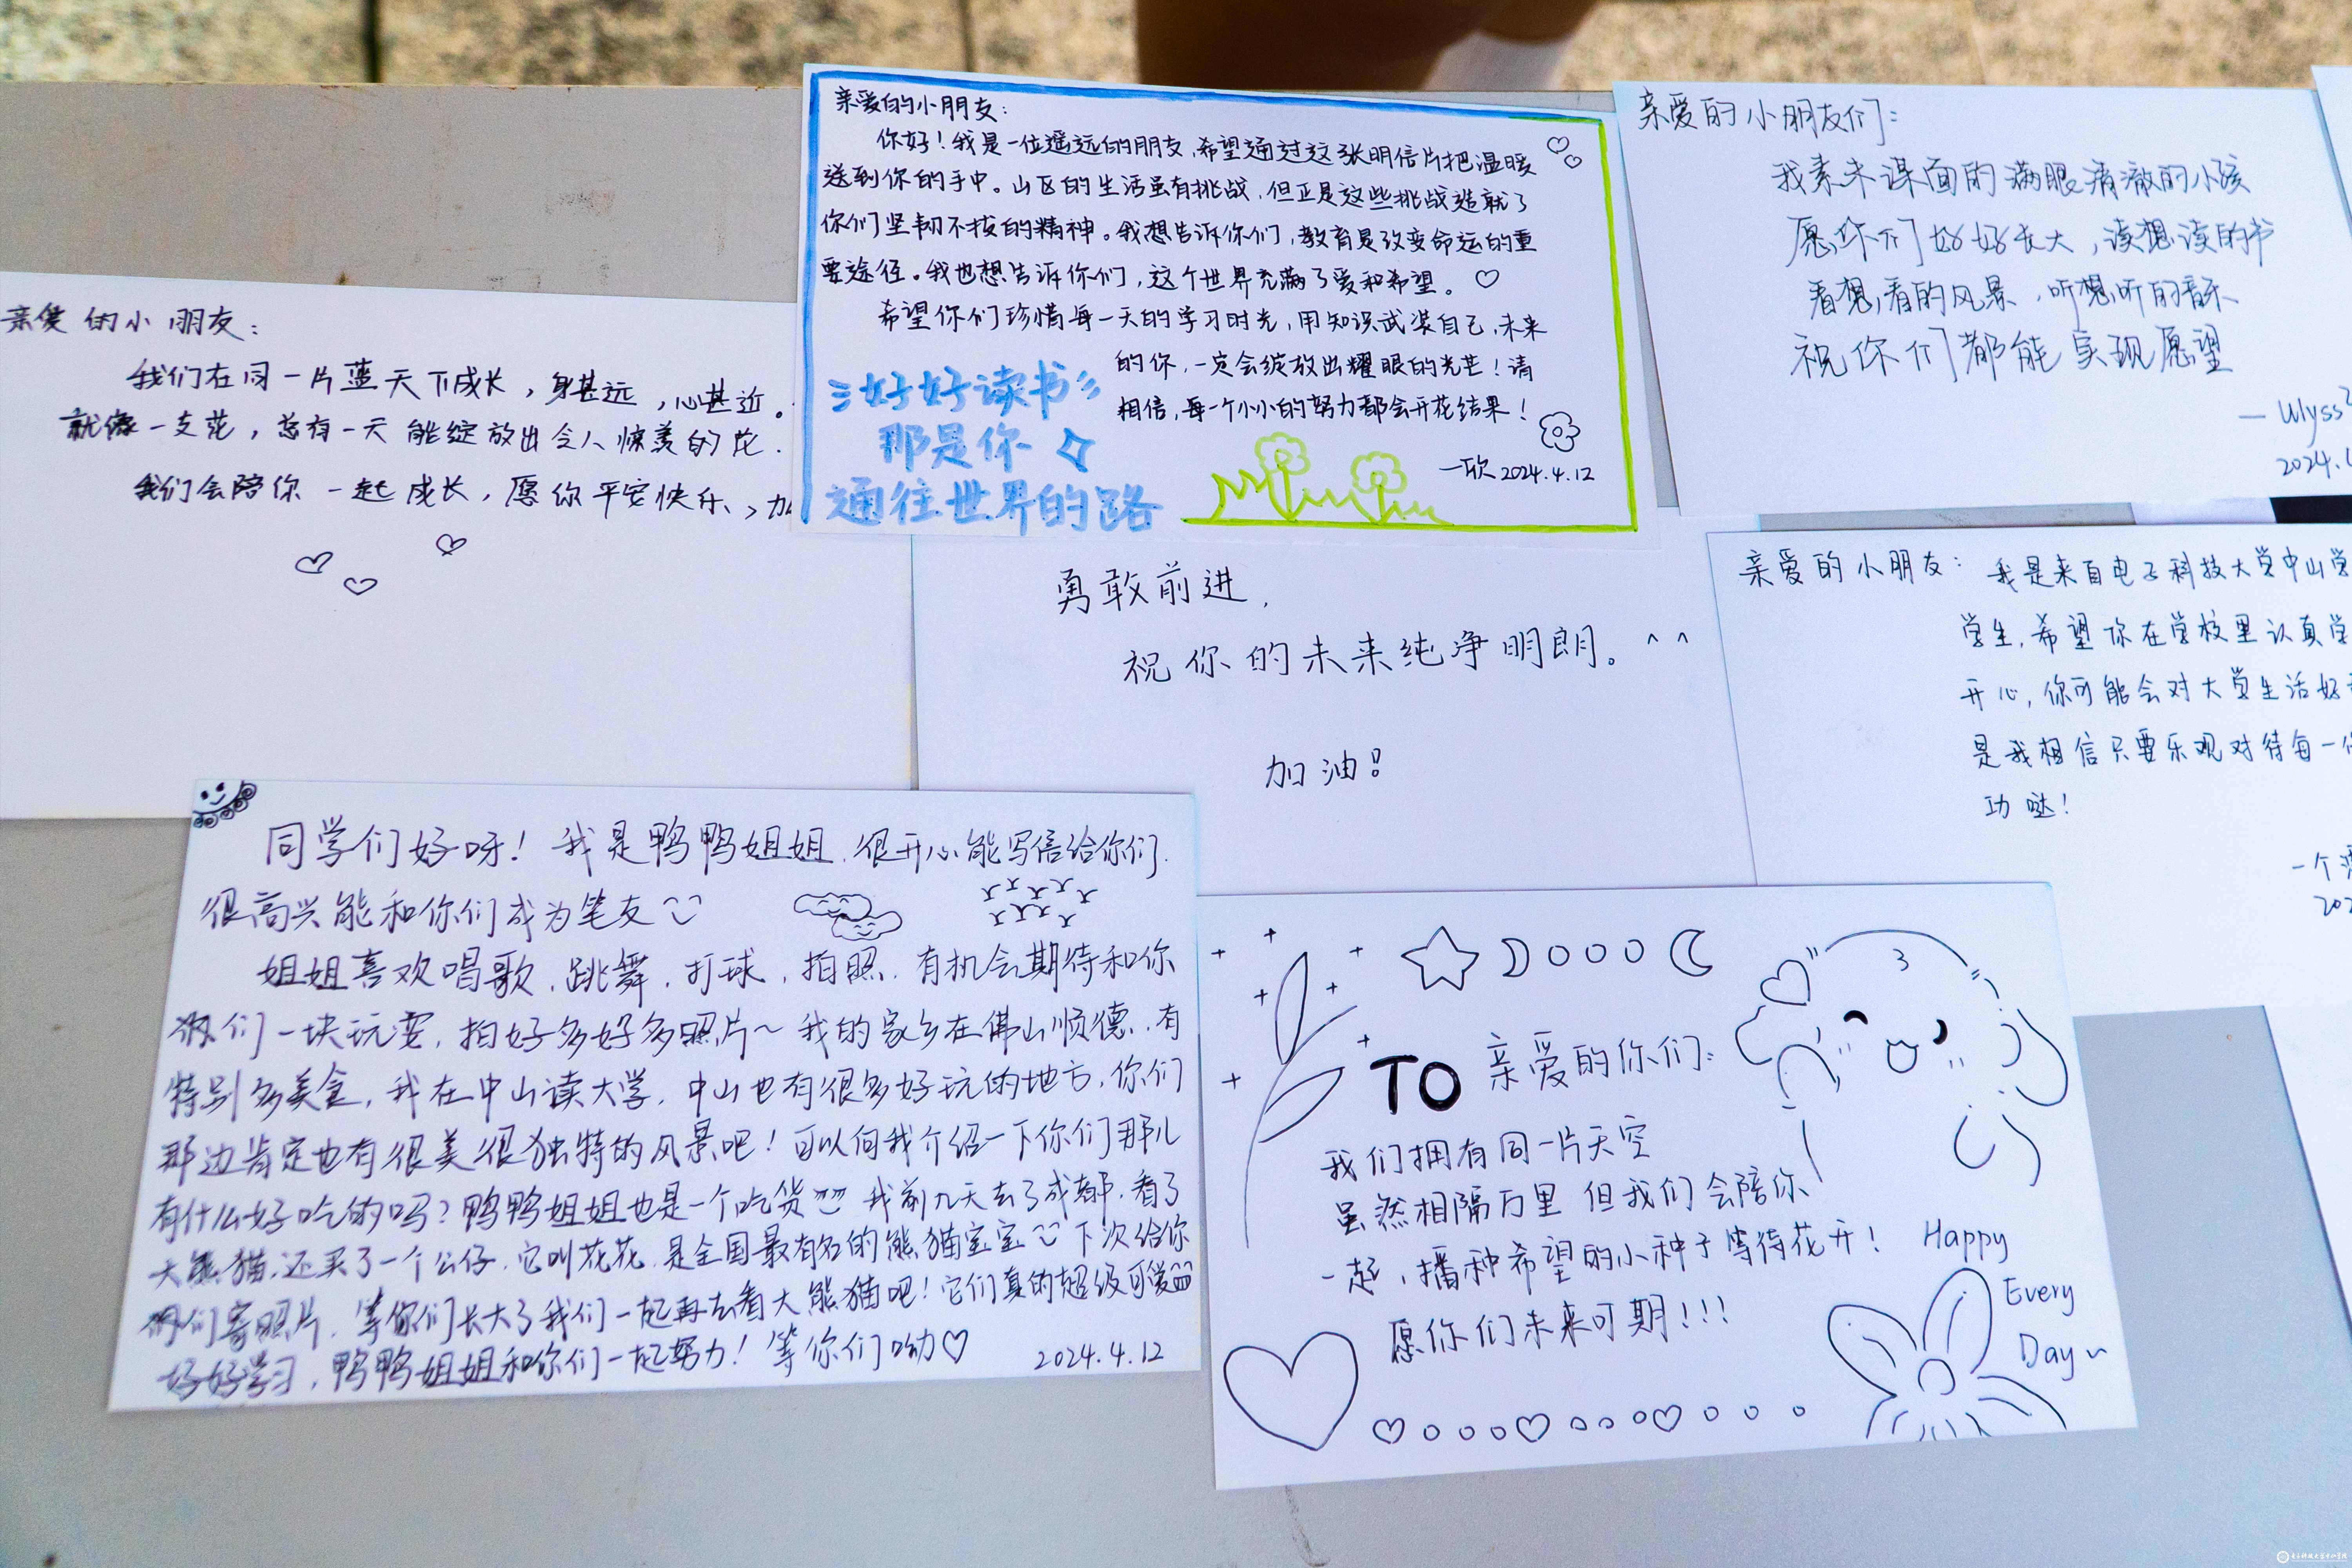 亲爱的小朋友：
我们在同一片蓝天下成长，身甚远，心甚近。
就像一支花，总有一天能绽放出令人惊羡的花.
我们会陪你一起成长，愿你平安快乐、加
亲爱的小朋友：
你好！我是一位遥远的朋友，希望通过这张明信片把温暖
送到你的手中。山区的生活虽有挑战，但正是这些挑战造就了
你们坚韧不拔的精神。我想告诉你们，教育是改变命运的重
要途径。我也想告诉你们，这个世界充满了爱和希望。
希望你们珍惜每一天的学习时光，用知识武装自己，未来
的你，一定会绽放出耀眼的光芒！请
相信，每一个小小的努力都会开花结果！
一欣 2024.4.12
好好读书
那是你
通往世界的路
亲爱的小朋友们：
我素未谋面的满眼清澈的小孩
愿你们好好长大，读想读的书
看想看的风景，听想听的音乐
祝你们都能实现愿望
— Ulyss
2024.
勇敢前进，
祝你的未来纯净明朗。^ ^
加油！
亲爱的小朋友： 我是来自电子科技大学中山学
学生，希望你在学校里认真学
开心，你可能会对大学生活好
是我相信只要乐观对待每一
功哒！
一个
202
同学们好呀！我是鸭鸭姐姐，很开心能写信给你们，
很高兴能和你们成为笔友
姐姐喜欢唱歌，跳舞，打球，拍照，有机会期待和你
们一块玩耍，拍好多好多照片~我的家乡在佛山顺德，有
特别多美食，我在中山读大学，中山也有很多好玩的地方，你们
那边肯定也有很美很独特的风景吧！可以向我介绍一下你们那儿
有什么好吃的吗？鸭鸭姐姐也是一个吃货 我前几天去了成都，看了
大熊猫，还买了一个公仔，它叫花花，是全国最有名的熊猫宝宝 下次给你
们寄照片，等你们长大了我们一起再去看大熊猫吧！它们真的超级可爱
好好学习，鸭鸭姐姐和你们一起努力！等你们呦♡
2024.4.12
TO 亲爱的你们：
我们拥有同一片天空
虽然相隔万里 但我们会陪你
一起，播种希望的小种子等待花开！
愿你们未来可期！！！
Happy
Every
Day~